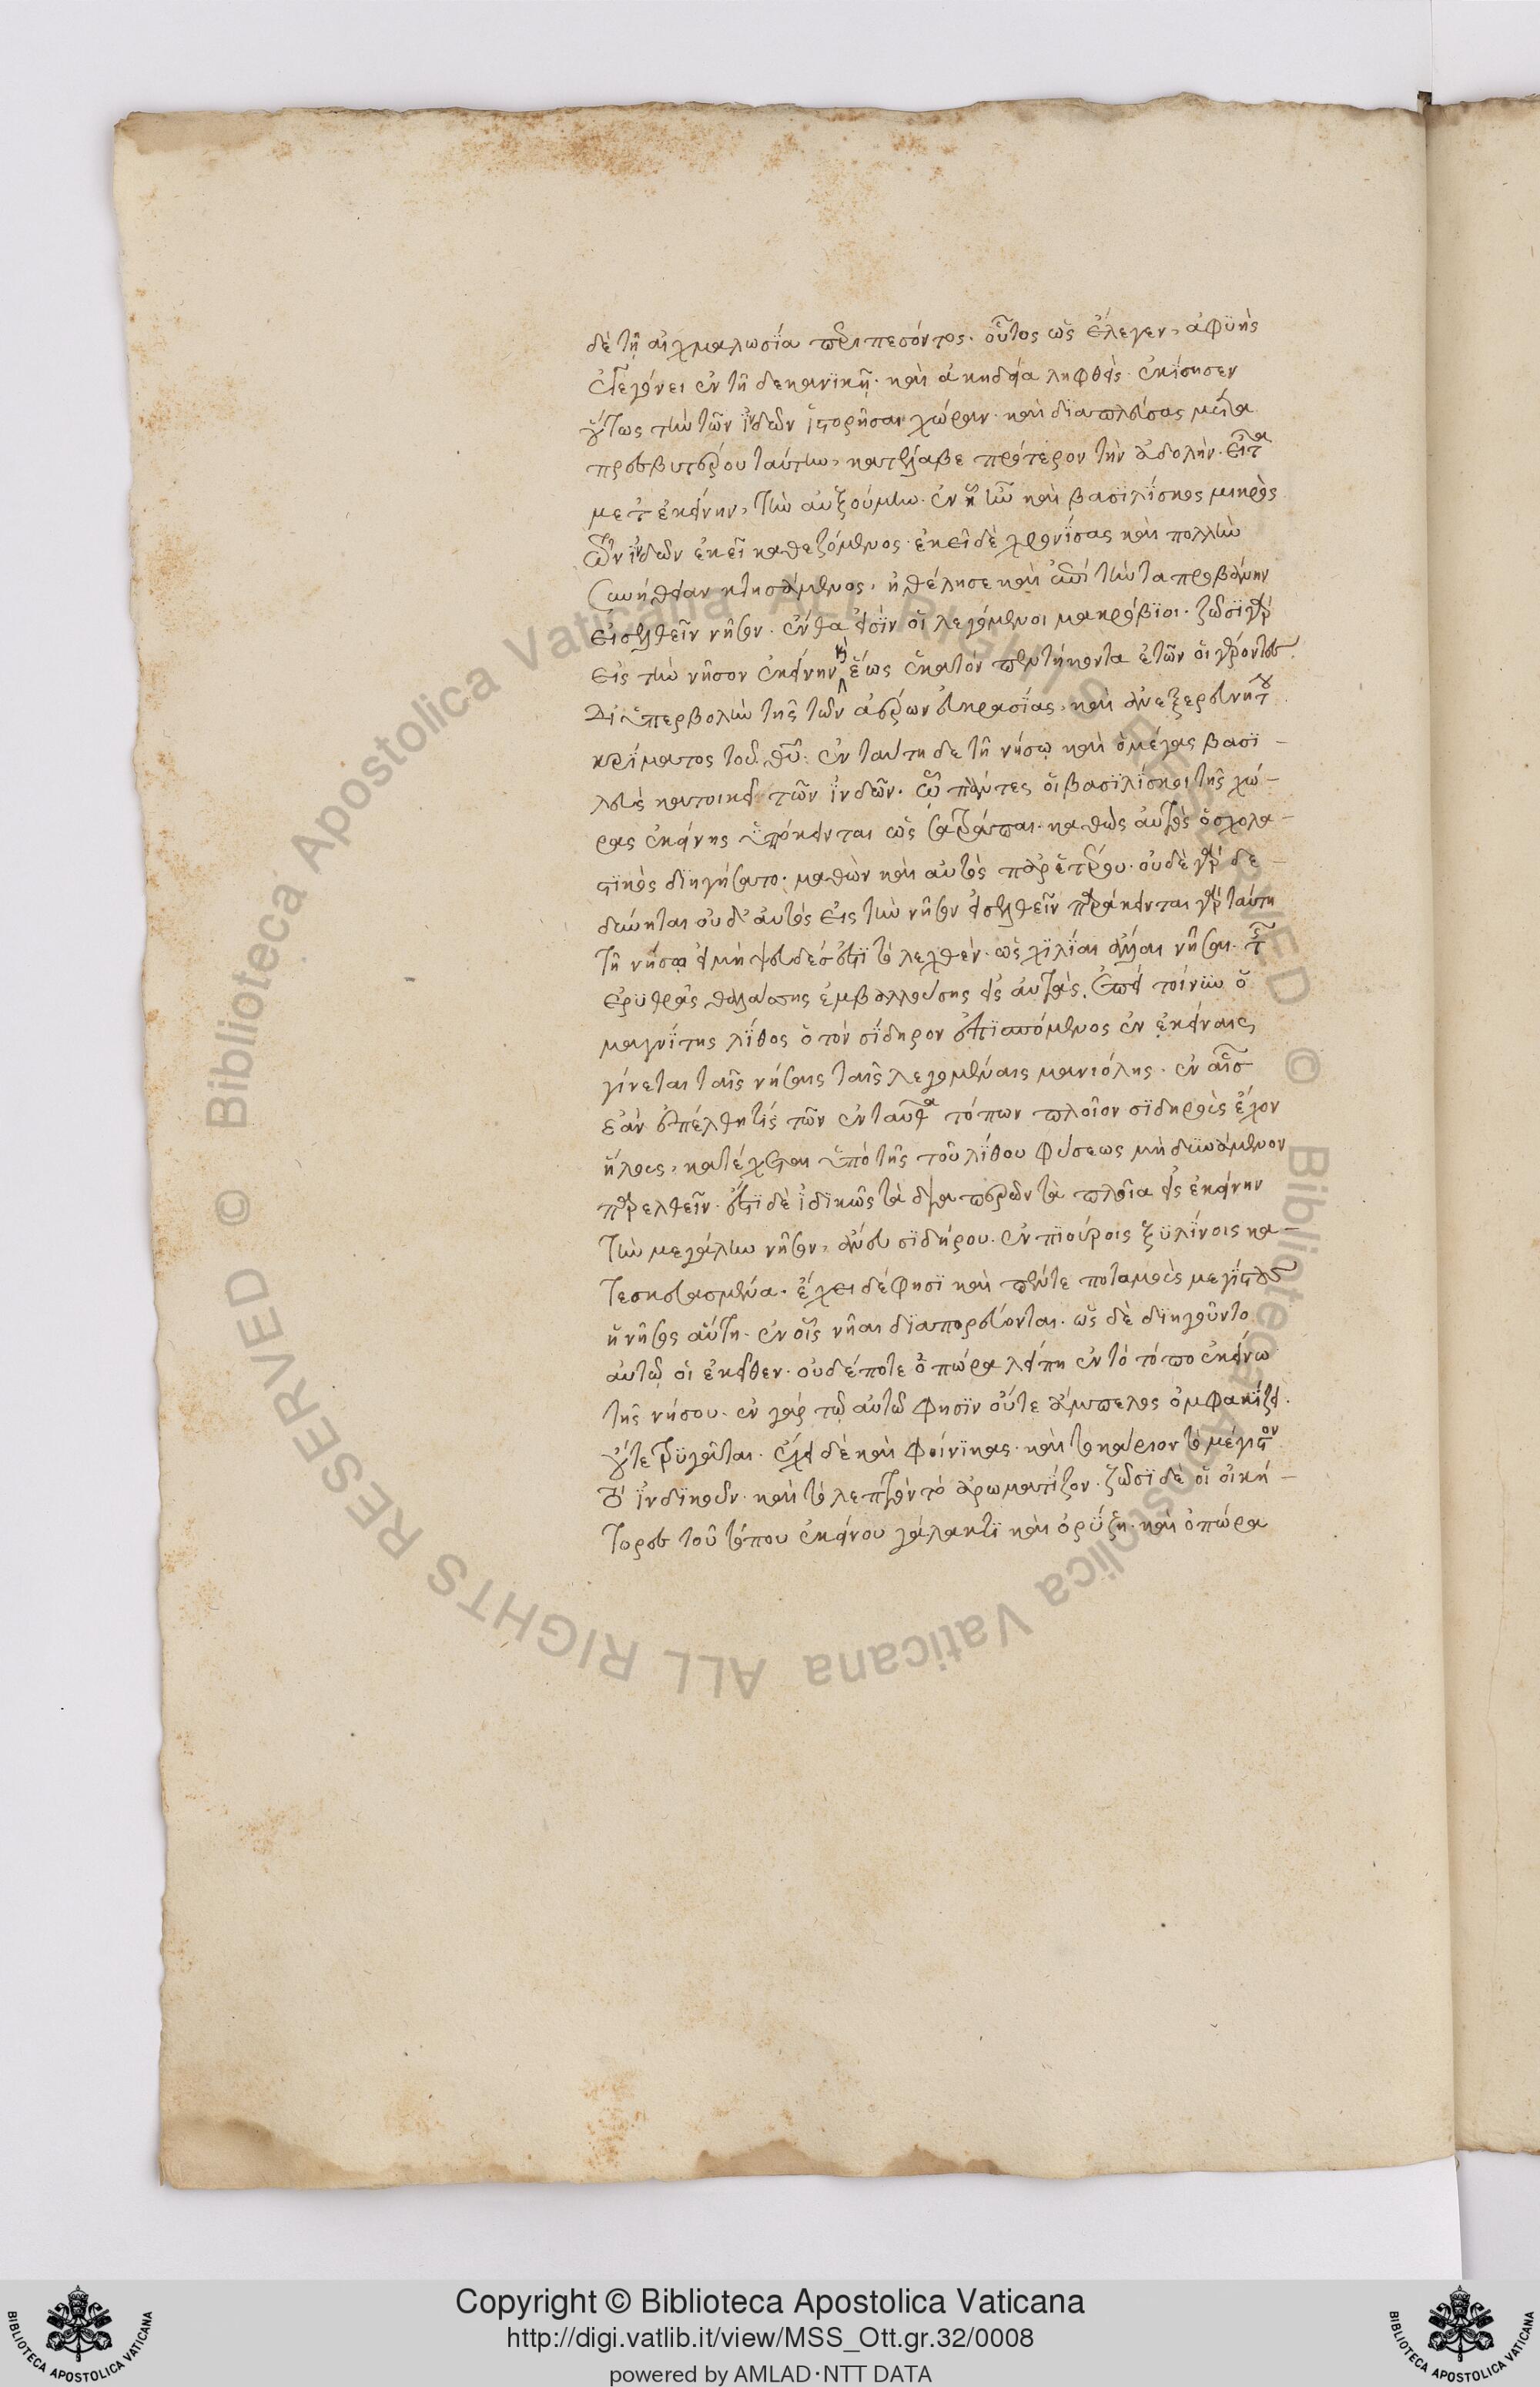 δὲ τῆ αἰχμαλωσΐα περιπεσόντος. οὗτος ὡς ἔλεγεν, ἀφϋὴς
ἐγεγόνει ἐν τῆ δεκανϊκῆ. καὶ ἀκηδεία ληφθεὶς. ἐκίσησεν
οὕτως τὴν τῶν ἰνδῶν ἱστορῆσαι χώραν. καὶ διαπλεύσας μετὰ
πρεσβυτέρου ταύτην, κατέλαβε πρότερον τὴν ἀδολὴν. εἶτα
μετ ἐκείνην, τὴν αὐξούμην. ἐν ἧ ἦν καὶ βασϊλΐσκος μικρὸς
τῶν ἰνδῶν ἐκεῖ καθεζόμενος. ἐκεῖ δὲ χρονΐσας καὶ πολλὴν
συνήθειαν κτησάμενος, ἠθέλησε καὶ ἐπὶ τὴν ταπροβάνην
εἰσελθεῖν νῆσον. ἔνθα εἰσϊν οἱ λεγόμενοι μακρόβϊοι. ζῶσϊ γὰρ
εἰς τὴν νῆσον ἐκείνην καὶ ἕως ἑκατὸν πεντήκοντα ἐτῶν οἱ γέροντες.
δι ὑπερβολὴν τῆς τῶν ἀέρων εὐκρασΐας, καὶ ἀνεξερευνήτου
κρΐματος τοῦ θῦ. ἐν ταύτη δε τῆ νήσῳ καὶ ὁ μέγας βασϊ-
λεὺς κατοικεῖ τῶν ἰνδῶν. ὧ πάντες οἱ βασϊλίσκοι τῆς χώ-
ρας ἐκείνης ὑπόκεινται ὡς σατράπαι. καθὼς αὐτὸς ὁ σχολα-
στϊκὸς διηγήσατο. μαθὼν καὶ αὐτὸς παρ ἑτέρου. οὐδὲ γὰρ δε-
δύνηται οὐδ αὐτὸς εἰς τὴν νῆσον εἰσελθεῖν παράκεινται γὰρ ταύτη
τῆ νήσῳ εἰ μὴ ψευδές ἐστϊ τὸ λεχθὲν. ὡς χϊλΐαι ἄλλαι νῆσοι. τῆς
ἐρϋθρᾶς θαλάσσης ἐμβαλλούσης εἰς αὐτὰς. ἐπεὶ τοίνϋν ὁ
μαγνΐτης λΐθος ὁ τὸν σΐδηρον ἐπϊσπόμενος ἐν ἐκείναις
γίνεται ταῖς νήσοις ταῖς λεγομέναις μανιόλης. ἐν αἷς
ἐὰν ἐπέλθη τίς τῶν ἐνταῦθα τόπων πλοῖον σϊδηροὺς ἔχον
ἥλους, κατέχεται ὑπὸ τῆς τοῦ λΐθου φύσεως μὴ δϋνάμενον
παρελθεῖν. ἐστϊ δὲ ἰδϊκῶς τὰ διαπερῶντα πλοῖα εἰς ἐκείνην
τὴν μεγάλην νῆσον, ἄνευ σϊδήρου. ἐν πϊούροις ξϋλΐνοις κα-
τεσκευασμένα. ἔχει δέ φησϊ καὶ πέντε ποταμοὺς μεγΐστους
ἡ νῆσος αὕτη. ἐν οἷς νῆαι διαπορεύονται. ὡς δὲ διηγοῦντο
αὐτῷ οἱ ἐκεῖθεν. οὐδέποτε ὀπώρα λείπη ἐν τὸ τόπο ἐκείνω
τῆς νήσου. ἐν γὰρ τῷ αὐτῶ φησϊν οὔτε ἄμπελος ὀμφακΐζει.
οὔτε τρϋγᾶται. ἔχει δὲ καὶ φοίνϊκας. καὶ το κάρϊον τὸ μέγιστον
τὸ ἰνδϊκὸν. καὶ τὸ λεπτὸν τὸ ἀρωματΐζον. ζῶσϊ δὲ οἱ οἰκή-
τορες τοῦ τόπου ἐκείνου γάλακτϊ καὶ ὀρΰζη. καὶ ὀπώρα
Copyright © Biblioteca Apostolica Vaticana
http://digi.vatlib.it/view/MSS_Ott.gr.32/0008
powered by AMLAD·NTT DATA
BIBLIOTECA APOSTOLICA VATICANA
BIBLIOTECA APOSTOLICA VATICANA
© Biblioteca Apostolica Vaticana ALL RIGHTS RESERVED
© Biblioteca Apostolica Vaticana ALL RIGHTS RESERVED